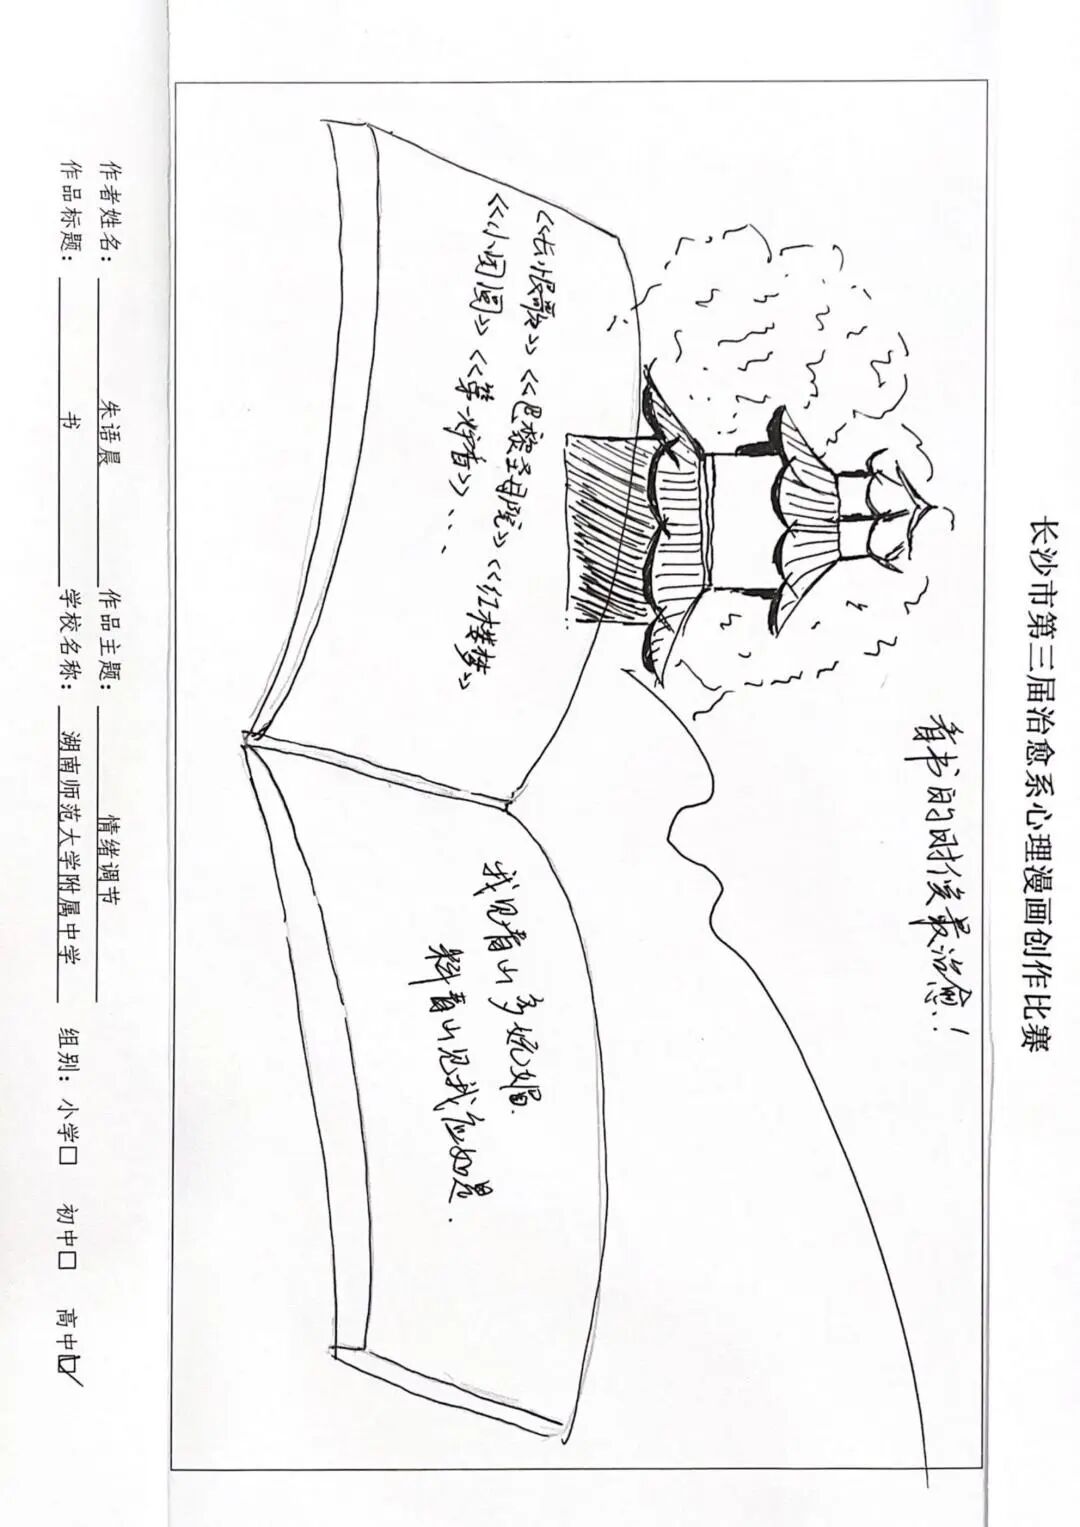 长沙市第三届治愈系心理漫画创作比赛
看书的时候最治愈！
《长恨歌》《巴黎圣母院》《红楼梦》
《小团圆》《第一炉香》...
我见青山多妩媚
料青山见我应如是.
作者姓名： 朱语晨 作品主题： 情绪调节
作品标题： 书 学校名称： 湖南师范大学附属中学 组别：小学□ 初中□ 高中☑